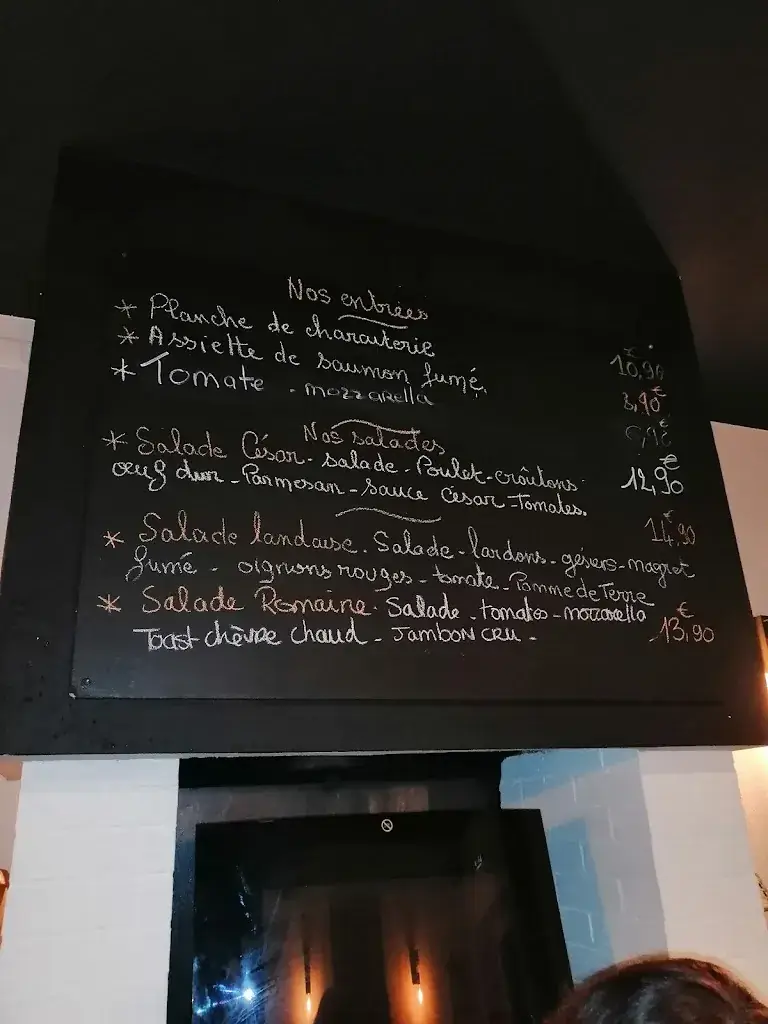 Nos entrées
* Planche de charcuterie 10,90 €
* Assiette de saumon fumé. 8,90 €
* Tomate - mozzarella
Nos salades
* Salade César - Salade - Poulet - croûtons
œuf dur - Parmesan - Sauce César - Tomates. 12,90 €
* Salade landaise - Salade - lardons - gésiers - magret 14,90 €
fumé - oignons rouges - tomate - Pomme de Terre
* Salade Romaine - Salade - tomates - mozzarella
Toast chèvre chaud - Jambon cru - 13,90 €